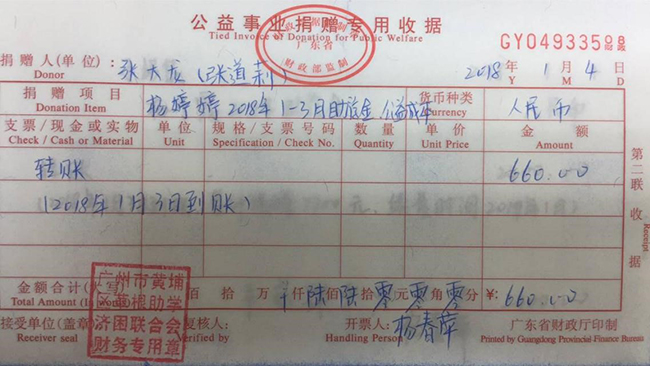 公益事业捐赠专用收据
Tied Invoice of Donation for Public Welfare
广东省
财政部监制
GY0493350
捐赠人(单位): 张天龙(张道莉) 2018年1月4日
Donor Y M D
捐赠项目 杨婷婷2018年1-3月助 金 货币种类 人民币
Donation Item Currency
支票/现金或实物 单位 规格/支票号码 数量 单价 金额
Check / Cash or Material Unit Specification / Check No. Quantity Unit Price Amount
转账 660.00
(2018年1月3日到账)
第二联 收据
Receipt
金额合计(大写) 佰 拾 万 仟陆佰陆拾零元零角零分 ¥: 660.00
Total Amount (In
广州市黄埔
区 根助学
济困联合会
财务专用章
接受单位(盖章) 复核人: 开票人: 杨春萍 广东省财政厅印制
Receiver seal Verified by Handling Person Printed by Guangdong Provincial Finance Bureau